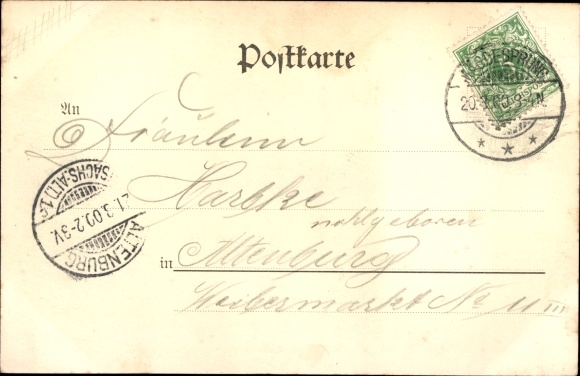 Postkarte
An
Fräulein
Harbke
wohlgeboren
in Altenburg
Weibermarkt No 11 III
MÄGDESPRUNG
20.
ALTENBURG
SACHS.-ALT. 1.
21.3.00.2-3V.